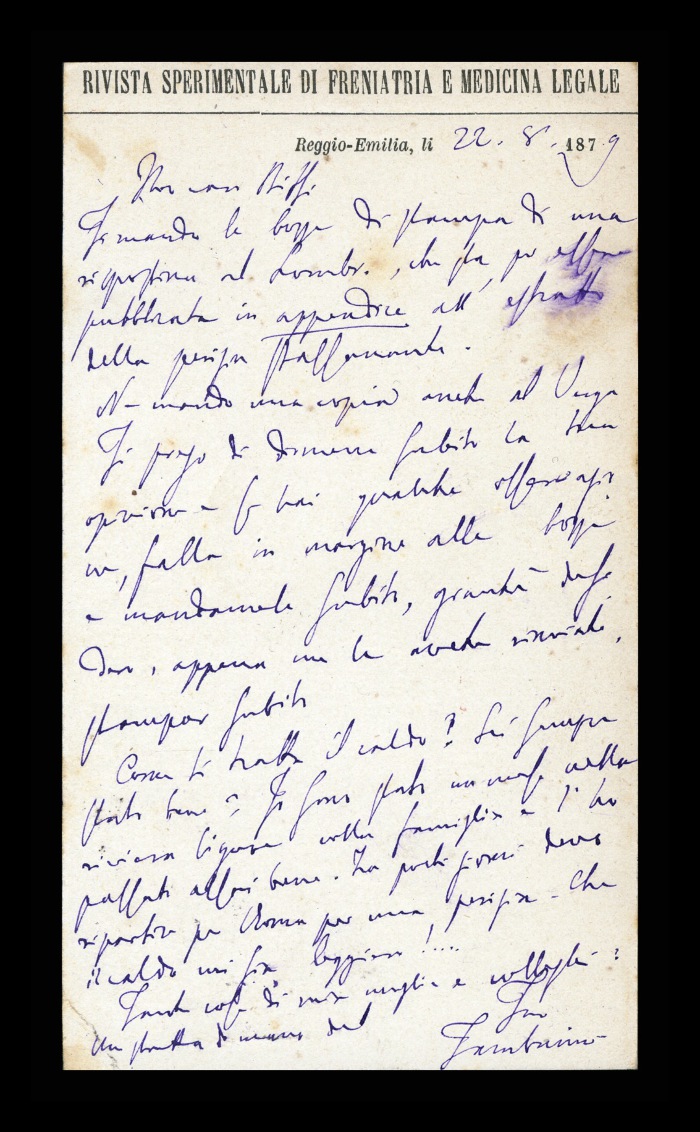 RIVISTA SPERIMENTALE DI FRENIATRIA E MEDICINA LEGALE
Reggio-Emilia, li 22. 8. 1879
Mio caro Biffi
Ti mando le bozze di stampa di una
rispostina al Lombr., che sta per essere
pubblicata in appendice all' estratto
della perizia Passanante.
Ne mando una copia anche al Verga
Ti prego di dirmene subito la tua
opinione e se hai qualche osservazio
ne, falla in margine alle bozze
e mandamele subito, giacchè desi
dero, appena me le avete rinviate,
stampar subito
Come ti tratta il caldo? Sei sempre
stato bene? Io sono stato un mese nella
riviera ligure colla famiglia e l' ho
passato assai bene. Fra pochi giorni devo
ripartire per Roma per una perizia - Che
il caldo mi sia leggiero!....
Tante cose di mia moglie e
Una stretta di mano dal
Tuo
Tamburini